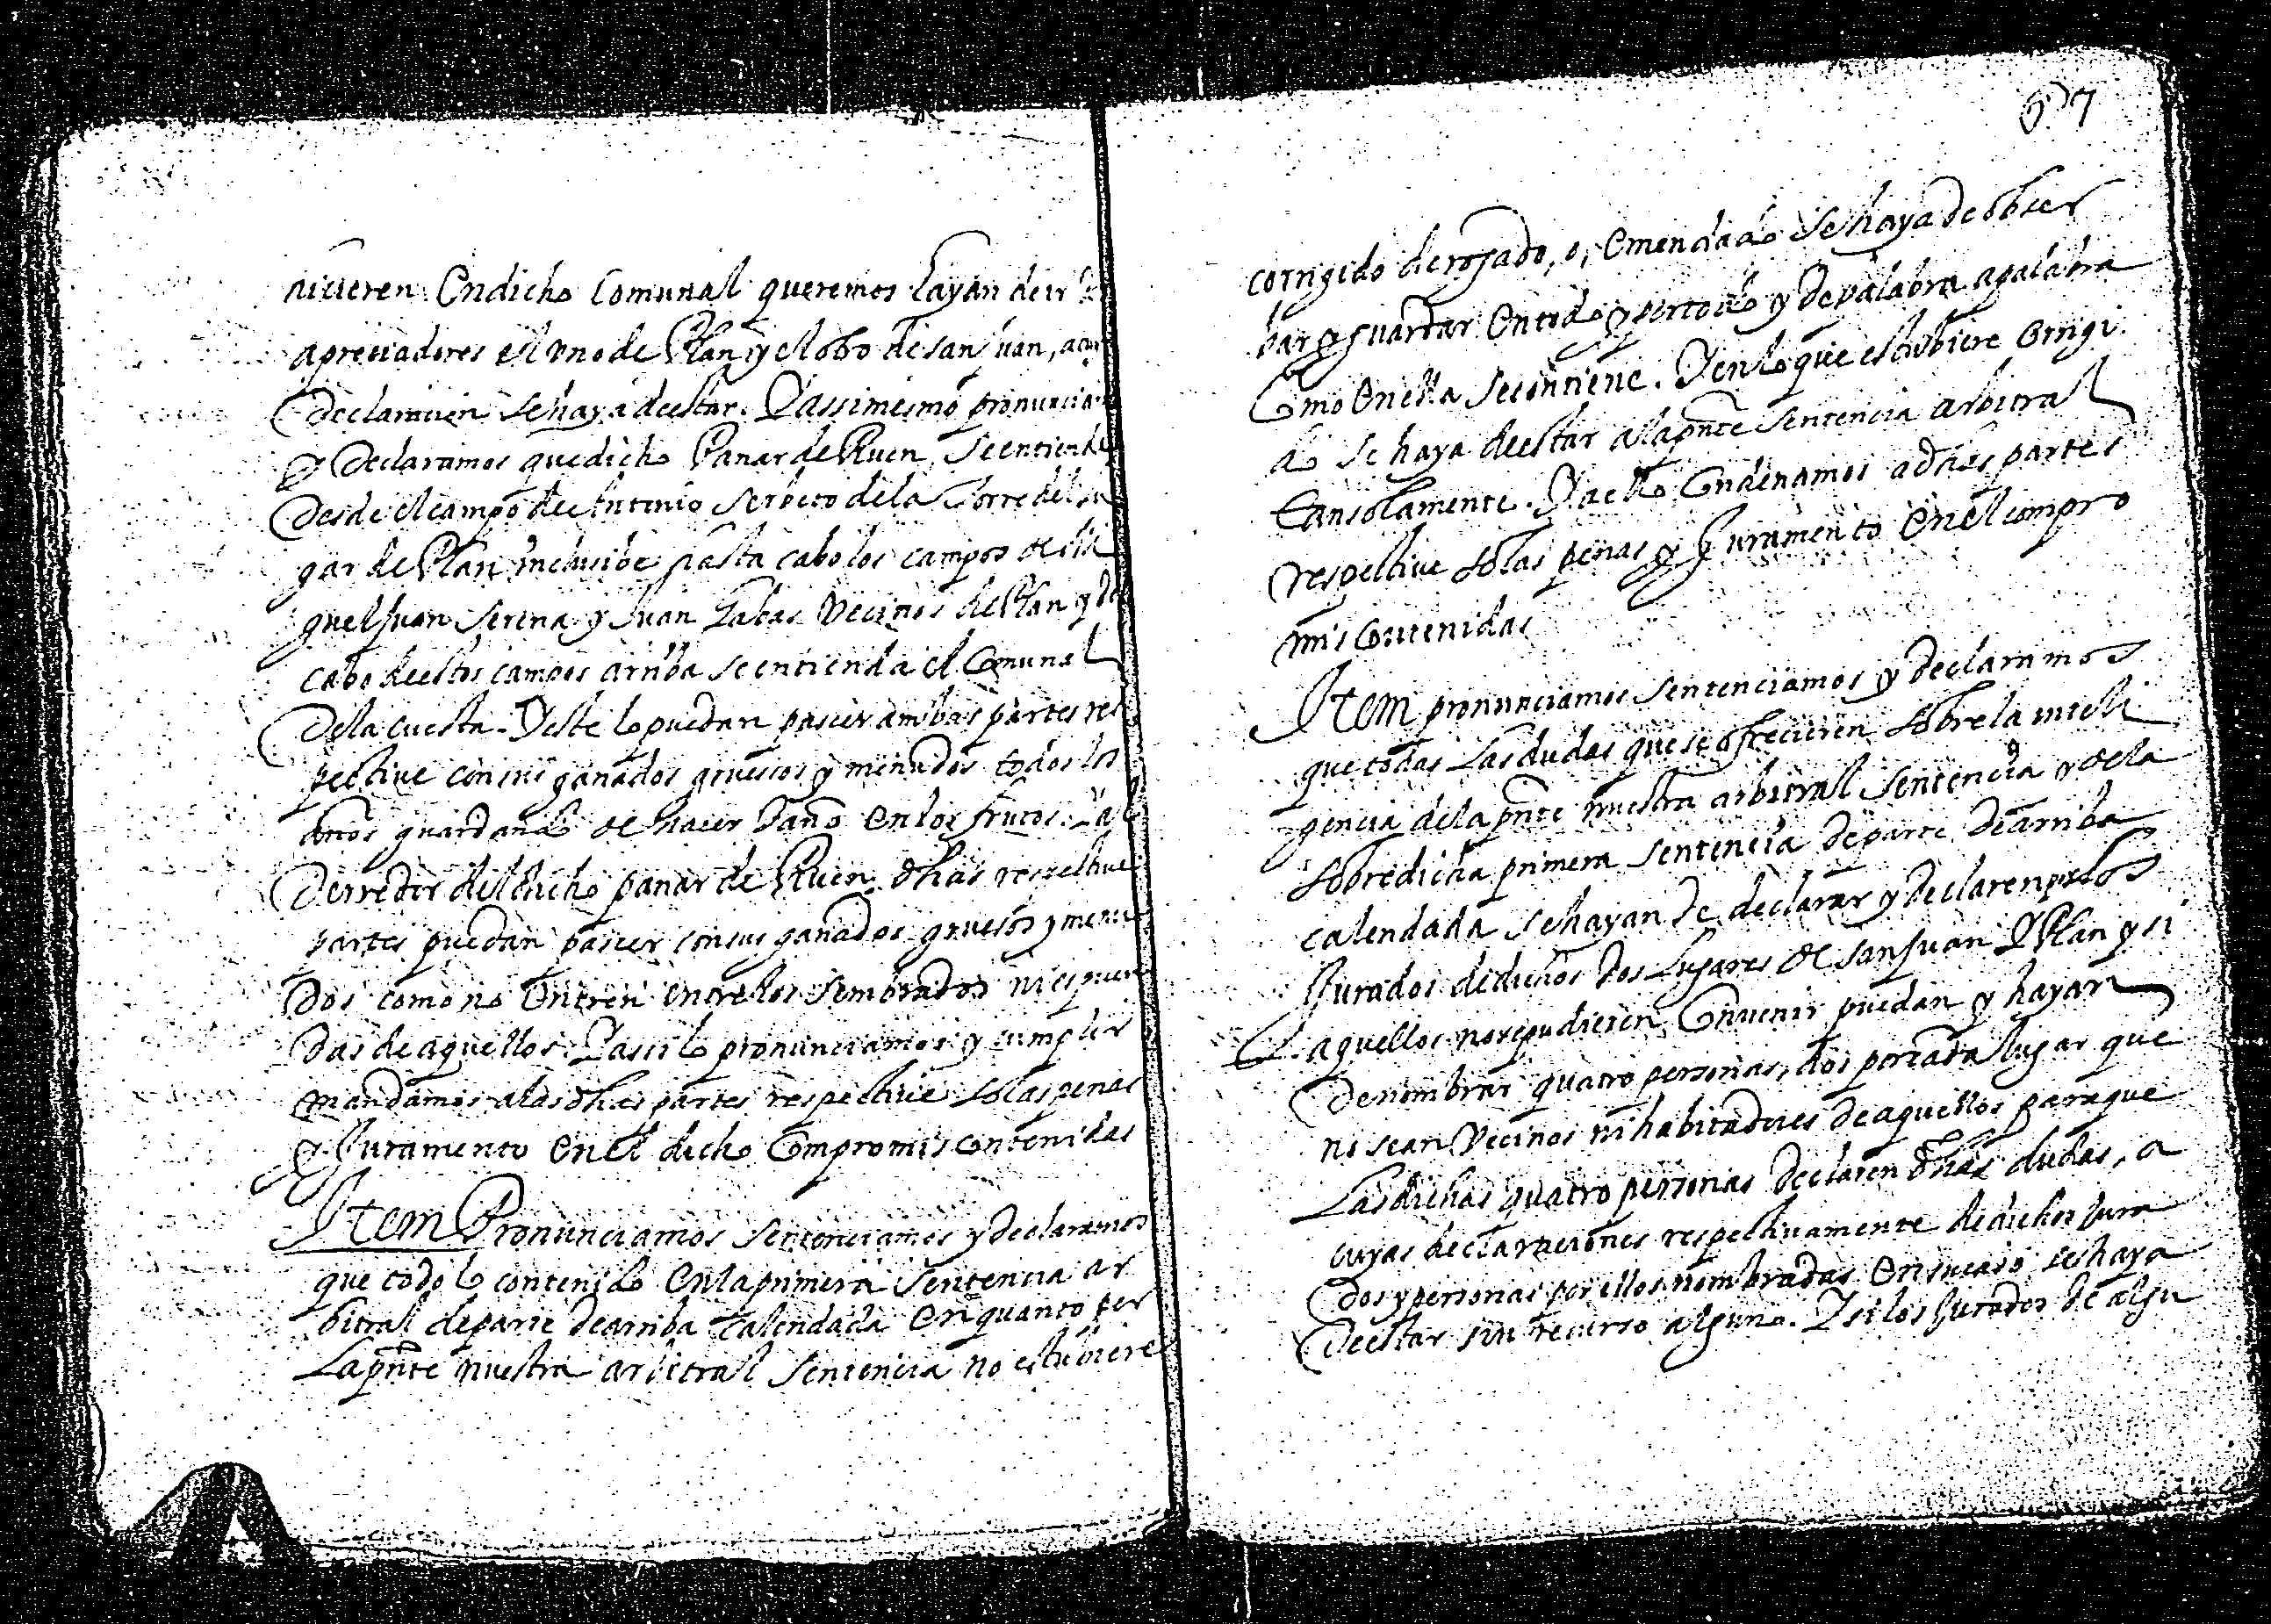 uicieren En dicho Comunal queremos hayan de ir
apreciadores el vno de Plan y el otro de san Juan, a cuya
Declaracion se haya de estar. Y assimismo pronunciamos
y Declaramos que dicho Panar de Ruen, se entienda
Desde el campo de Antonio Serbeto de la Torre del lu
gar de Plan inclusibe hasta cabo los campos de Mi
guel Juan Serena y Juan Labas Vecinos de Plan y del
cabo de estos campos arriba se entienda el Comunal
De la cuesta. Y este lo puedan pascer ambas partes res
pective con sus ganados gruessos y menudos todos los
años guardando de hacer Daño En los frutos. Y al
Derredor del dicho panar de Ruen dhas respective
partes puedan pascer con sus ganados gruesos y menu
Dos como no Entren entre los sembrados ni
das de aquellos. Y assi lo pronunciamos y cumplir
mandamos a las dhas partes respective so las penas
y Juramento En el dicho Compromis contenidas
Item Pronunciamos sentenciamos y declaramos
que todo lo contenido En la primera sentencia ar
bitral de parte de arriba calendada En quanto por
La pnte nuestra arbitral sentencia no estubiere
67
corrigido derogado, o, Emendado Se haya de obser
bar y guardar En todo y por todo y De palabra a palabra
Como En ella se contiene. Y en lo que estubiere Corrigi
do se haya de estar a la pnte sentencia arbitral
tansolamente. Y a ello Condenamos a dhas partes
respective so las penas y Juramento En el compro
mis Contenidas
Item pronunciamos sentenciamos y declaramos
que todas Las dudas que se ofrecieren sobre la inteli
gencia de la pnte nuestra arbitral sentencia y de la
sobredicha primera sentencia de parte de arriba
calendada se hayan de declarar y declaren por los
Jurados de dichos dos Lugares de san Juan y Plan y si
aquellos no se pudieren Convenir puedan y hayan
de nombrar quatro personas, dos por cada lugar que
no sean Vecinos ni habitadores de aquellos para que
Las dichas quatro personas declaren dhas dudas, a
cuyas declaraciones respectivamente de dichos Jura
dos y personas por ellos nombradas En su caso se haya
de estar sin recurso alguno. Y si los Jurados de algu